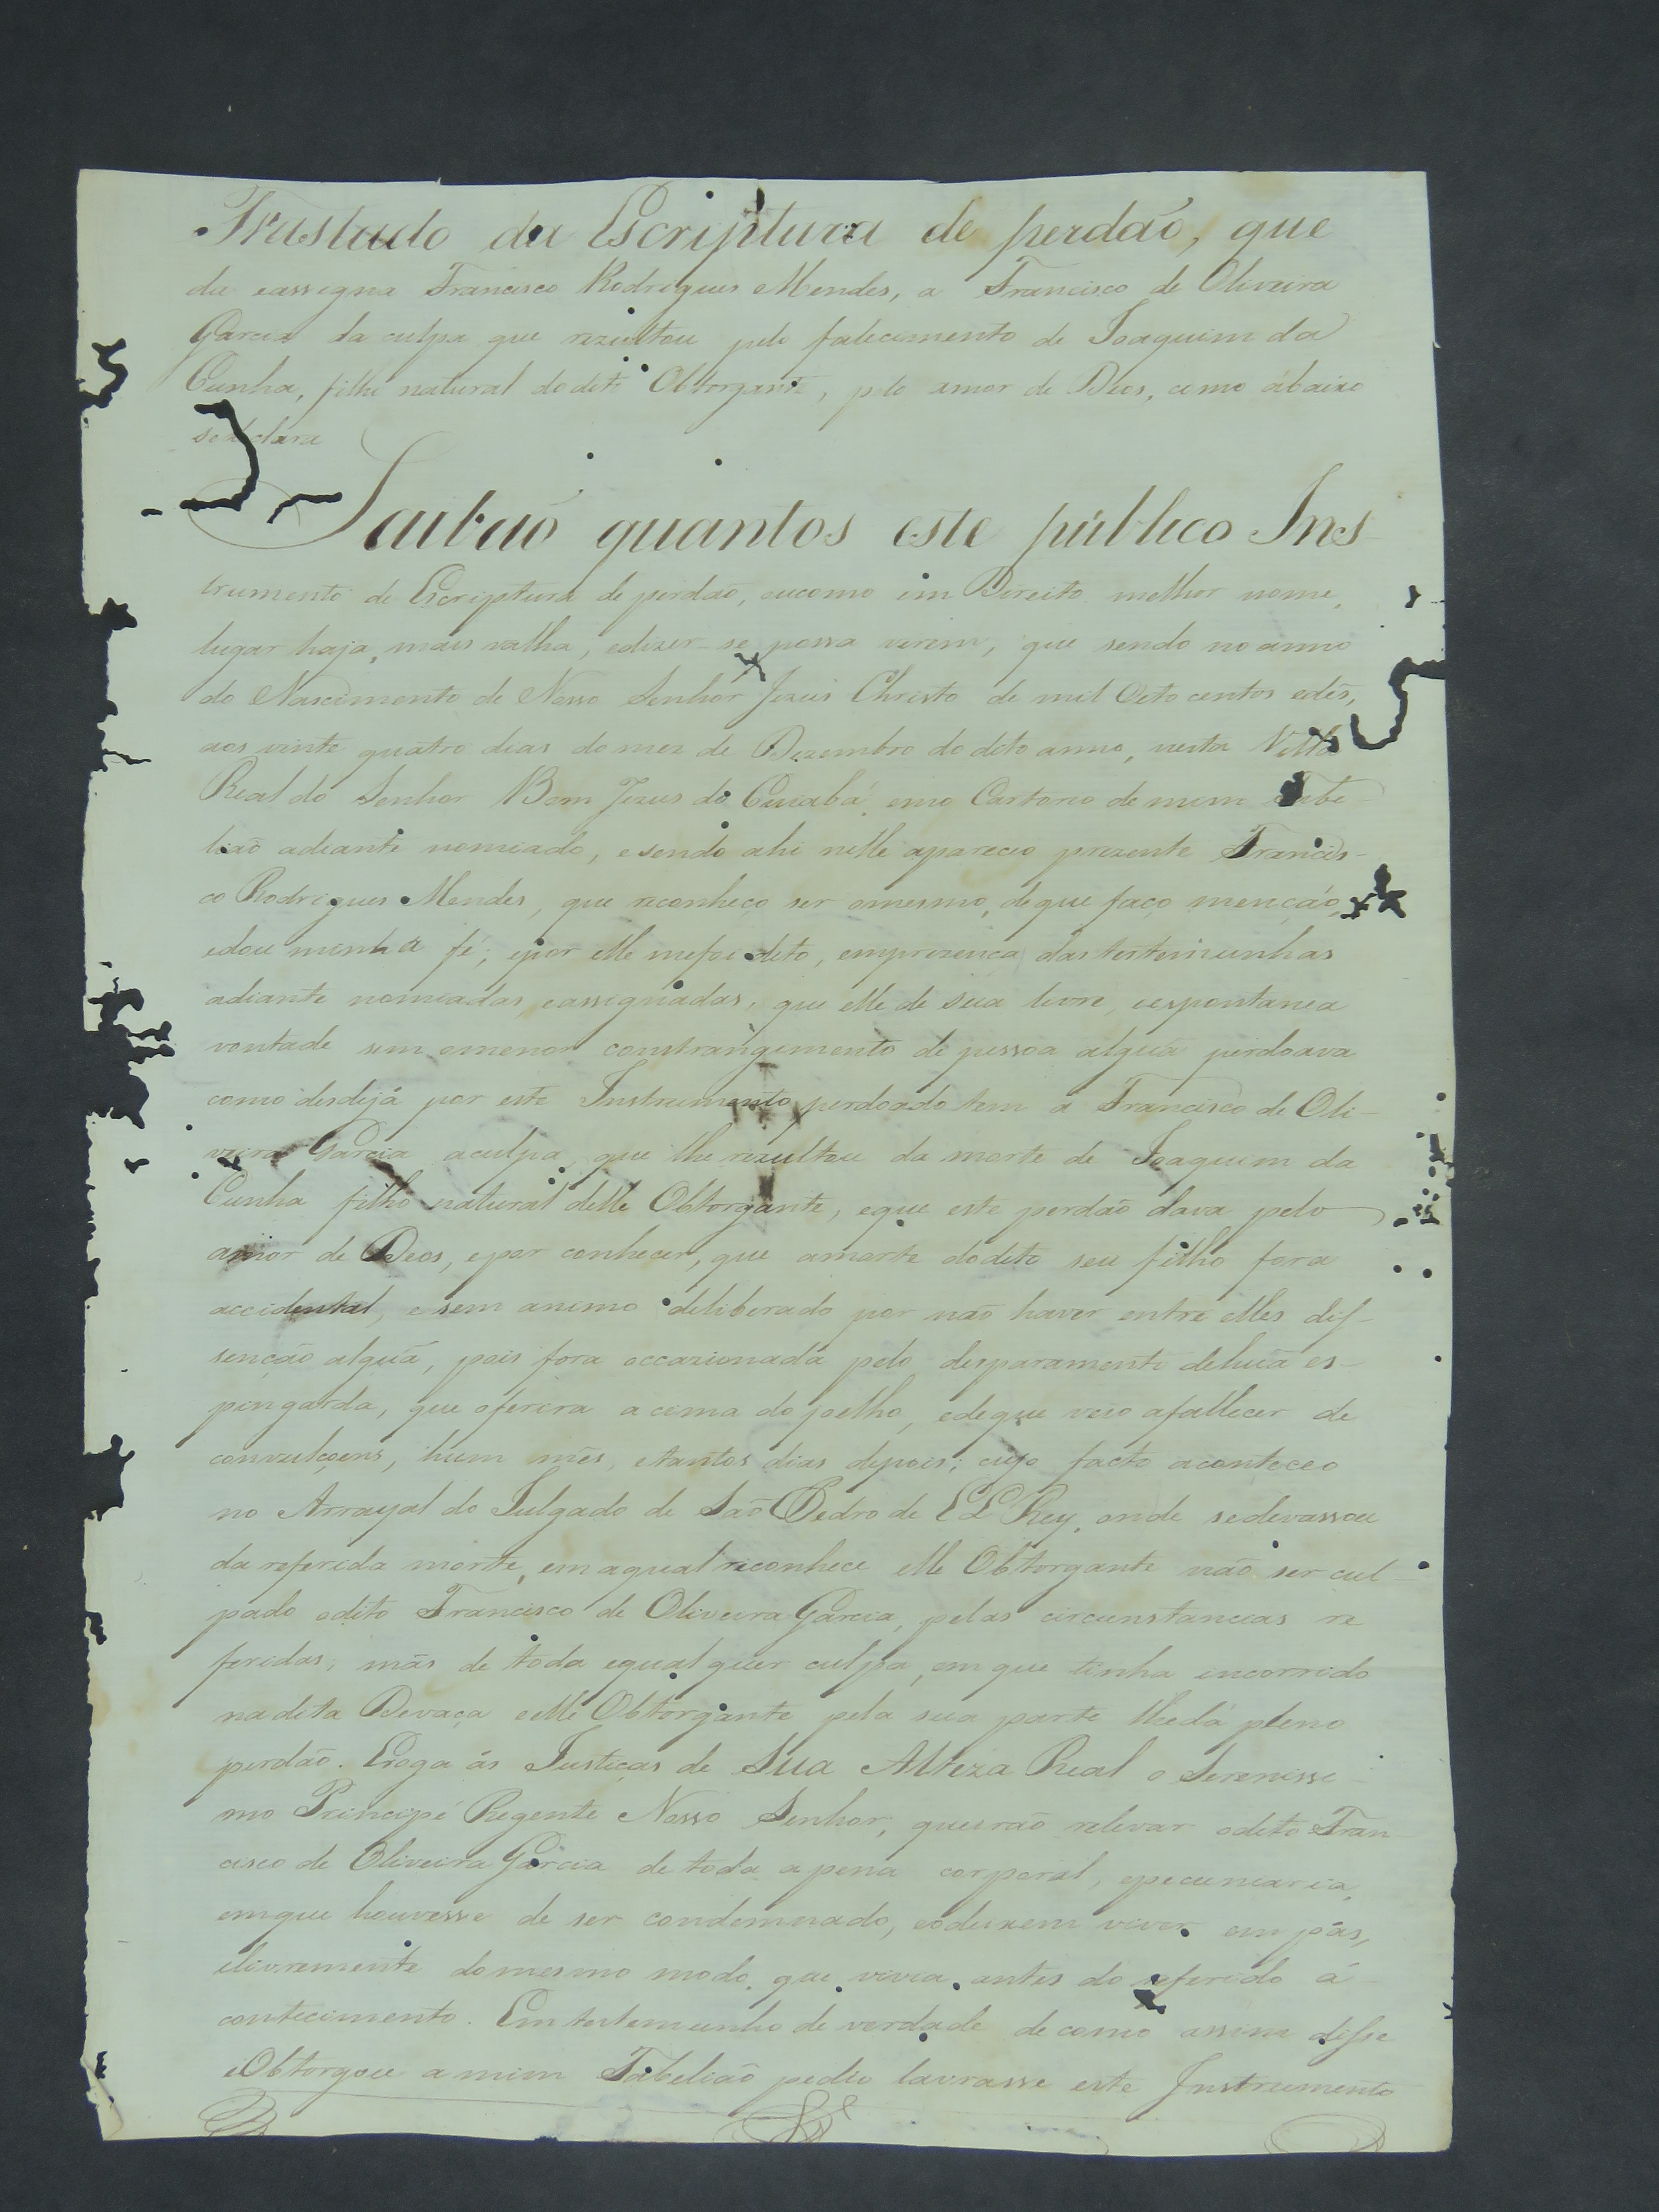 Traslado da Escriptura de perdaõ, que
da eassigna Francisco Rodrigues Mendes, a Francisco de Oliveira
Garcia da culpa que rezultou pelo falecimento de Joaquim da
Cunha, filho natural do dito Obtorgante, pelo amor de Deos, como ábaixo
sedeclara
Saibaõ quantos este público Ins
trumento de Escriptura de perdaõ, oucomo em Direito melhor nome,
lugar haja, mais valha, edizer-se possa virem, que sendo no anno
do Nascimento de Nosso Senhor Jezus Christo de mil Oito centos edês,
aos vinte quatro dias do mez de Dezembro do dito anno, nesta Villa
Real do Senhor Bom Jezus do Cuiabá, emo Cartorio de mim Tabe-
liaõ adiante nomiado, esendo ahi nelle apareceo prezente Francis-
co Rodrigues Mendes, que reconheço ser omesmo, deque faço mençaõ,
edou minha fé; epor elle mefoi dito, emprezença dastestemunhas
adiante nomiadas, eassignadas, que elle de sua livre, eespontanea
vontade sem omenor constrangimento de pessoa alguã perdoava
como desdejá por este Instrumento perdoado tem a Francisco de Oli-
veira Garcia aculpa, que lhe rezultou da morte de Joaquim da
Cunha filho natural delle Obtorgante, eque este perdaõ dava pelo
amor de Deos, epor conhecer, que amorte dodito seu filho fora
accidental, esem animo deliberado por naõ haver entre elles dis-
sençaõ alguã, pois fora occazionada pelo desparamento dehuã es-
pingarda, que oferira acima do joelho, edeque veio afallecer de
convulçoens, hum mês, etantos dias depois; cujo facto aconteceo
no Arrayal do Julgado de Saõ Pedro de El Rey, onde sedevassou
da referida morte, emaqual reconhece elle Obtorgante naõ ser cul-
pado odito Francisco de Oliveira Garcia, pelas circunstancias re
feridas; más de toda equalquer culpa, em que tinha incorrido
nadita Devaça elle Obtorgante pela sua parte lhedá pleno
perdaõ. Eroga ás Justiças de Sua Alteza Real o Serenissi-
mo Principe Regente Nosso Senhor, queiraõ relevar odito Fran
cisco de Oliveira Garcia de toda apena corporal, epecuniaria,
emque houvesse de ser condemnado, eodeixem viver em pás,
elivremente domesmo modo, que vivia antes do referido á-
contecimento. Emtestemunho de verdade decomo assim disse
eObtorgou amim Tabeliaõ pedio lavrasse este Instrumento